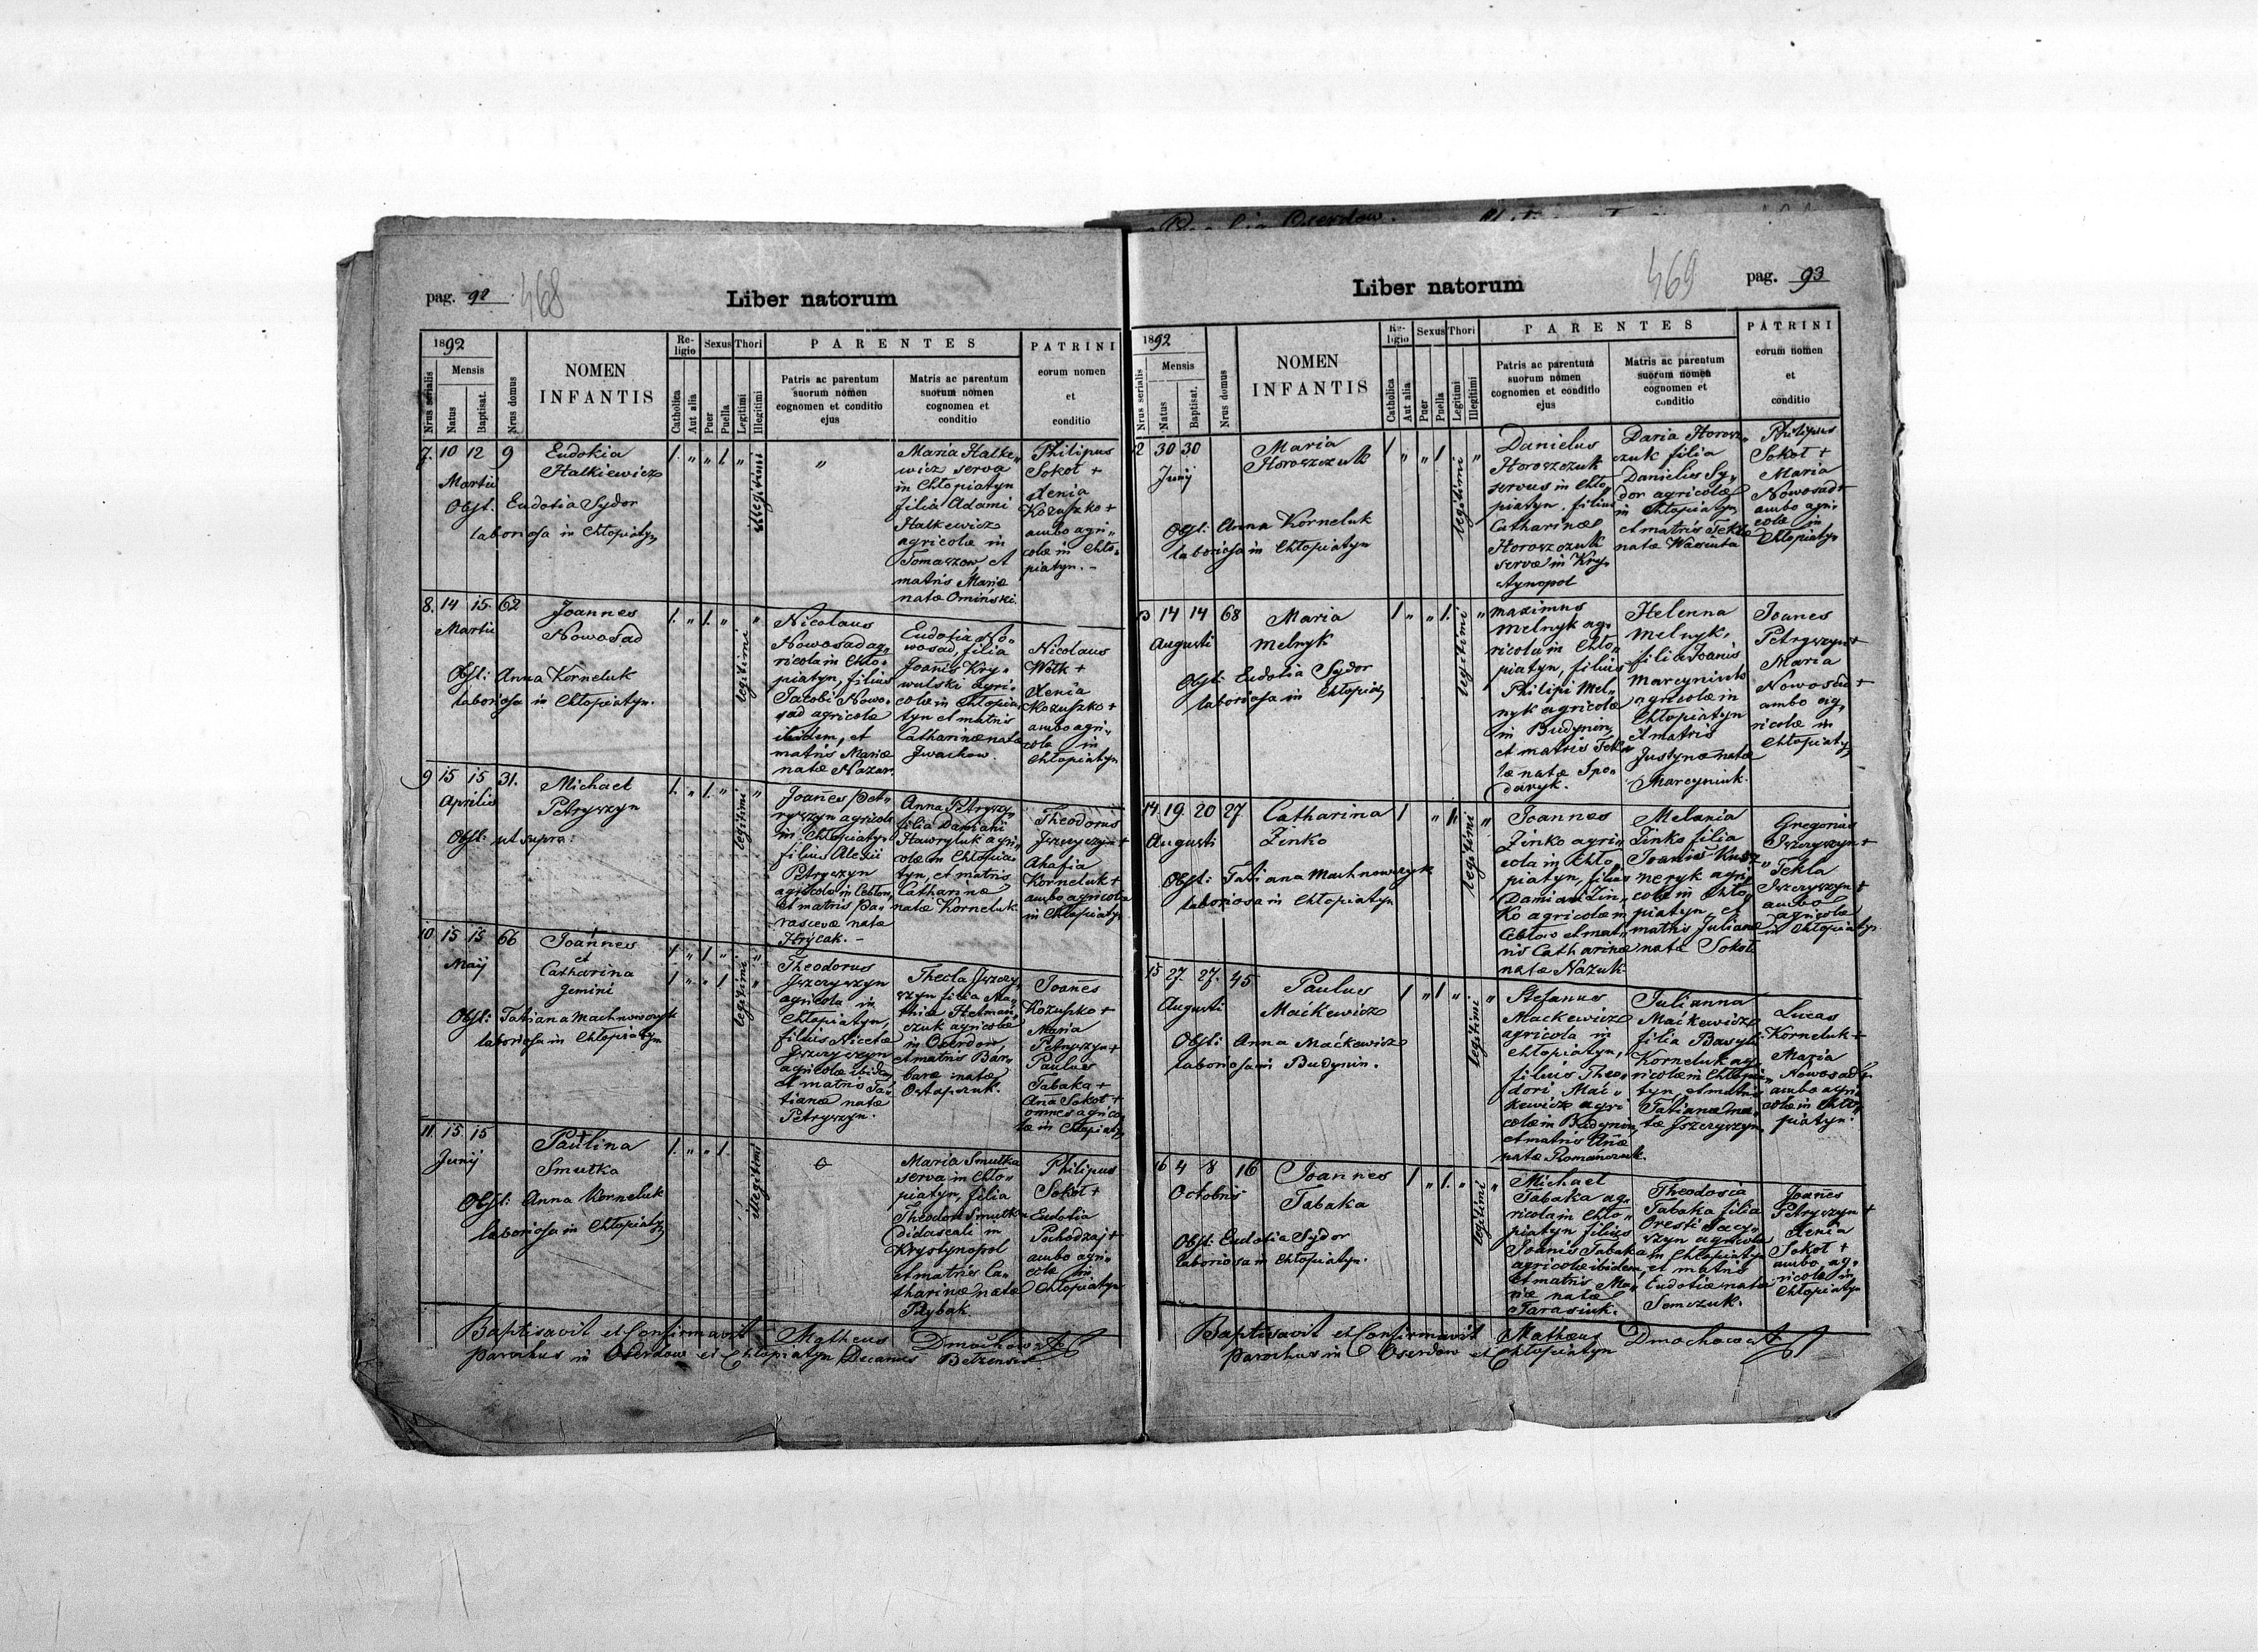 pag. 92
468
Liber natorum
1892
Mensis
Nrus serialis
Natus
Baptisat.
Nrus domus
NOMEN
INFANTIS
Religio
Catholica
Aut alia
Sexus
Puer
Puella
Thori
Legitimi
Illegitimi
PARENTES
Patris ac parentum
suorum nomen
cognomen et conditio
ejus
Matris ac parentum
suorum nomen
cognomen et
conditio
PATRINI
eorum nomen
et
conditio
7. 10 12 9
Martii
Eudokia
Halkiewicz
Obst. Eudotia Sydor
laboriosa in Chłopiatyn
1. „ „ 1. „
illegitimi
„
Maria Halke„
wicz serva
in Chłopiatyn
filia Adami
Halkewicz
agricolæ in
Tomaszow, et
matris Mariæ
natæ Omiński.
Philipus
Sokoł +
Xenia
Kozuszko +
ambo agri„
colæ in Chło„
piatyn. –
8. 14 15 62
Martii
Joannes
Nowosad
Obst: Anna Korneluk
laboriosa in Chłopiatyn.
1. „ 1. „ „
legitimi
Nicolaus
Nowosad ag„
ricola in Chło„
piatyn, filius
Jacobi Nowo„
sad agricolæ
ibidem, et
matris Mariæ
natæ Nazar.
Eudotia No„
wosad, filia
Joanis Kry„
wulski agri„
colæ in Chłopia„
tyn et matris
Catharinæ natæ
Iwachow.
Nicolaus
Wołk +
Xenia
Kozuszko +
ambo agri„
colæ in
Chłopiatyn
9 15 15 31.
Aprilis
Michael
Petryszyn
Obst: ut supra:
1. „ 1. „ „
legitimi
Joannes Pet„
ryszyn agricola
in Chłopiatyn
filius Alexii
Petryszyn
agricolæ in Cebłow,
et matris Pa„
rascevæ natæ
Hrycak. –
Anna Petryszyn
filia Damiani
Hawryluk agri„
colæ in Chłopia„
tyn, et matris
Catharinæ
natæ Korneluk
Theodorus
Iszczyszyn +
Ahafia
Korneluk +
ambo agricolæ
in Chłopiatyn
10 15 15 66
Maij
Joannes
et
Catharina
gemini
Obst: Tatiana Machnowczyk
laboriosa in Chłopiatyn
1. „ 1. „ „
1 „ „ 1 „
legitimi
Theodorus
Iszczyszyn
agricola in
Chłopiatyn,
filius Nicetæ
Iszczyszyn
agricolæ ibidem,
et matris Ta„
tianæ natæ
Petryszyn.
Thecla Iszczy„
szyn filia Ma„
thiæ Hetman„
czuk agricolæ
in Oserdow,
et matris Bar„
baræ natæ
Ostapczuk.
Joannes
Kozuszko +
Maria
Petryszyn +
Paulus
Tabaka +
Anna Sokoł +
omnes agrico„
læ in Chłopiatyn
11. 15 15
Junij
Paulina
Smutka
Obst: Anna Korneluk
laboriosa in Chłopiatyn
1. „ „ 1.
illegitimi
Maria Smutka
serva in Chło„
piatyn, filia
Theodori Smutka
didascali in
Krystynopol
et matris Ca„
tharinæ natæ
Rybak
Philipus
Sokoł +
Eudotia
Pochodzaj +
ambo agri„
colæ in
Chłopiatyn
Baptisavit et Confirmavit Matheus Dmochowski
parochus in Oserdow et Chłopiatyn, Decanus Bełzensis
469
pag. 93
Liber natorum
1892
Mensis
Nrus serialis
Natus
Baptisat.
Nrus domus
NOMEN
INFANTIS
Religio
Catholica
Aut alia
Sexus
Puer
Puella
Thori
Legitimi
Illegitimi
PARENTES
Patris ac parentum
suorum nomen
cognomen et conditio
ejus
Matris ac parentum
suorum nomen
cognomen et
conditio
PATRINI
eorum nomen
et
conditio
12 30 30
Junij
Maria
Horoszczuk
Obst: Anna Korneluk
laboriosa in Chłopiatyn
1 „ „ 1 „
legitimi
Danielus
Horoszczuk
servus in Chło„
piatyn, filius
Catharinæ
Horoszczuk
servæ in Kry„
stynopol
Daria Horosz„
czuk filia
Danielis Sy„
dor agricolæ
in Chłopiatyn
et matris Teklæ
natæ Wasiuta
Philipus
Sokoł +
Maria
Nowosad +
ambo agri„
colæ in
Chłopiatyn
13 14 14 68
Augusti
Maria
Melnyk
Obst: Eudotia Sydor
laboriosa in Chłopiatyn
1 „ „ 1. „
legitimi
Maximus
Melnyk ag„
ricola in Chło„
piatyn, filius
Philipi Mel„
nyk agricolæ
in Budynin,
et matris Tek„
læ natæ Spo„
daryk.
Helenna
Melnyk,
filia Joanis
Marcyniuk
agricolæ in
Chłopiatyn
et matris
Justynæ natæ
Marcyniuk.
Joanes
Petryszyn +
Maria
Nowosad +
ambo ag„
ricolæ in
Chłopiatyn
14 19. 20 27
Augusti
Catharina
Zinko
Obst: Tatiana Machnowczyk
laboriosa in Chłopiatyn
1 „ 1. „
legitimi
Joannes
Zinko agri„
cola in Chło„
piatyn, filius
Damiani Zin„
ko agricolæ in
Cebłow et mat„
ris Catharinæ
natæ Nazuk
Melania
Zinko filia
Joanis Kusz„
neryk agri„
colæ in Chło„
piatyn, et
matris Julianæ
natæ Sokoł
Gregorius
Iszczyszyn +
Tekla
Iszczyszyn +
ambo
agricolæ
in Chłopiatyn
15 27. 27. 45
Augusti
Paulus
Maćkewicz
Obst: Anna Maćkewicz
laboriosa in Budynin.
1 „ 1 „ „
legitimi
Stefanus
Mackewicz
agricola in
Chłopiatyn,
filius Theo„
dori Mać„
kewicz agri
colæ in Budynin,
et matris Annæ
natæ Romanczuk.
Julianna
Maćkewicz
filia Basyli
Korneluk ag„
ricolæ in Chłopia„
tyn, et matris
Tatianæ na„
tæ Iszczyszyn
Lucas
Korneluk +
Maria
Nowosad +
ambo agri„
colæ in Chło„
piatyn.
16 4 8 16
Octobris
Joannes
Tabaka
Obst: Eudotia Sydor
laboriosa in Chłopiatyn.
1 „ 1. „ „
legitimi
Michael
Tabaka ag„
ricola in Chło„
piatyn filius
Joanis Tabaka
agricolæ ibidem,
et matris Ma„
riæ natæ
Tarasiuk.
Theodosia
Tabaka filia
Oresti Jacy„
szyn agricolæ
in Chłopiatyn
et matris
Eudotiæ natæ
Tomczuk.
Joannes
Petryszyn +
Xenia
Sokoł +
ambo ag„
ricolæ in
Chłopiatyn
Baptisavit et Confirmavit Matheus Dmochowski
parochus in Oserdow et Chłopiatyn